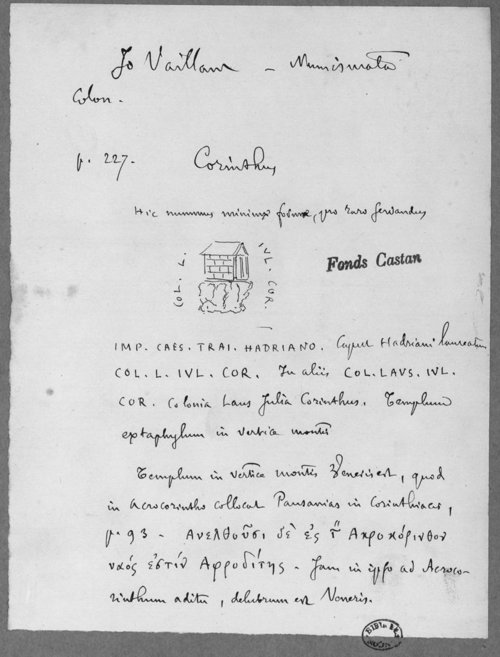 Jo Vaillant – Numismata
Colon.
p. 227. Corinthus
Hic nummus minimæ formæ, pro raro servandus
COL. L. IVL. COR.
Fonds Castan
IMP. CAES. TRAI. HADRIANO. Caput Hadriani laureatum
COL. L. IVL. COR. In aliis COL. LAVS. IVL.
COR. Colonia Laus Julia Corinthus. Templum
in vertice montis
Templum in vertice montis Veneris est, quod
in Acrocorintho collocat Pausanias in Corinthiacis,
p. 93 - Ανελθοῦσι δὲ ἐς τ̃ Ακροκόρινθον
ναός ἐστίν Αφροδίτης - Jam in ipso ad Acroco-
rinthum aditu, delubrum est Veneris.